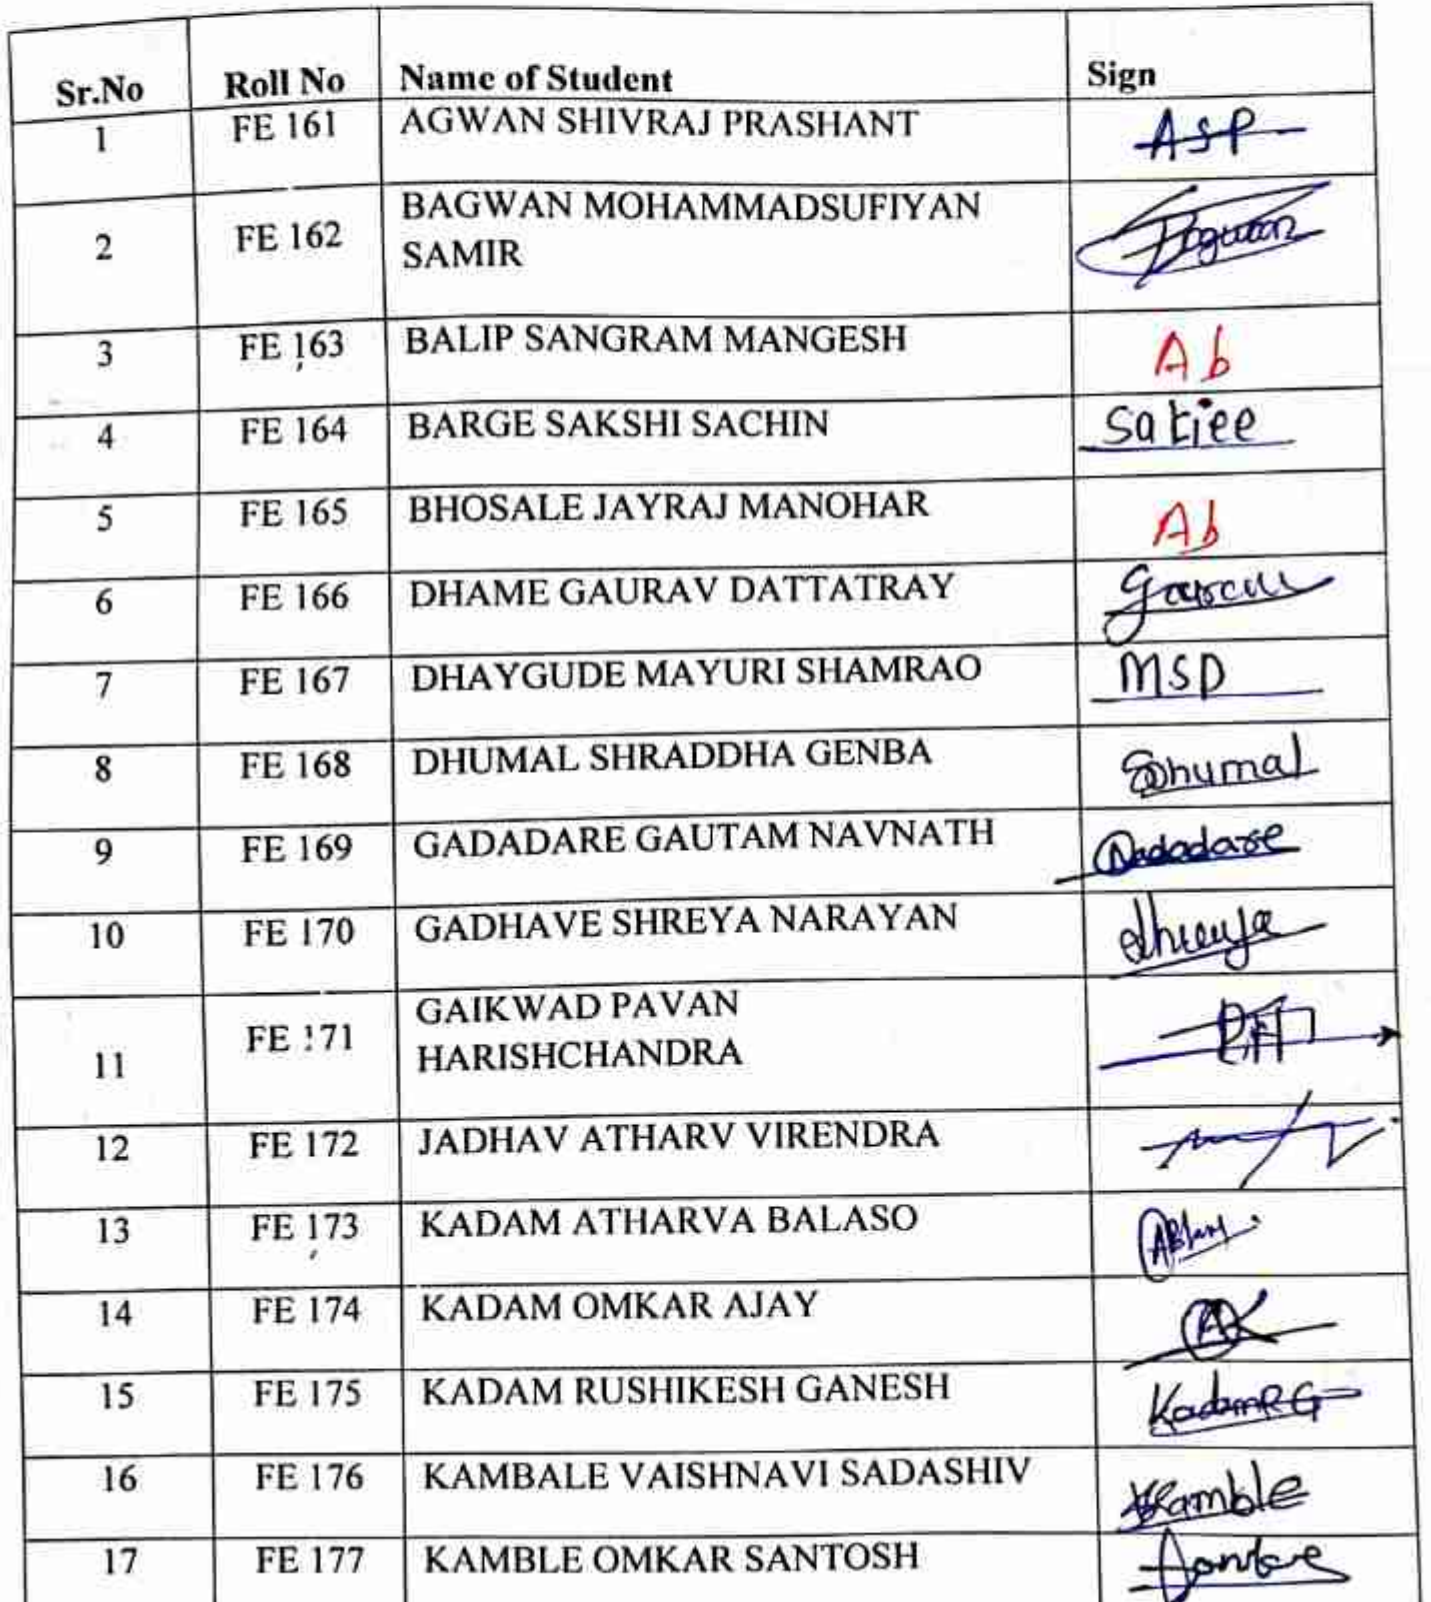 Sr.No Roll No Name of Student Sign
1 FE 161 AGWAN SHIVRAJ PRASHANT ASP
2 FE 162 BAGWAN MOHAMMADSUFIYAN
SAMIR Bagwan
3 FE 163 BALIP SANGRAM MANGESH Ab
4 FE 164 BARGE SAKSHI SACHIN
5 FE 165 BHOSALE JAYRAJ MANOHAR Ab
6 FE 166 DHAME GAURAV DATTATRAY Gaurav
7 FE 167 DHAYGUDE MAYURI SHAMRAO MSD
8 FE 168 DHUMAL SHRADDHA GENBA SDhumal
9 FE 169 GADADARE GAUTAM NAVNATH Gadadare
10 FE 170 GADHAVE SHREYA NARAYAN Shreya
11 FE 171 GAIKWAD PAVAN
HARISHCHANDRA
12 FE 172 JADHAV ATHARV VIRENDRA
13 FE 173 KADAM ATHARVA BALASO
14 FE 174 KADAM OMKAR AJAY
15 FE 175 KADAM RUSHIKESH GANESH KadamRG
16 FE 176 KAMBALE VAISHNAVI SADASHIV VKamble
17 FE 177 KAMBLE OMKAR SANTOSH